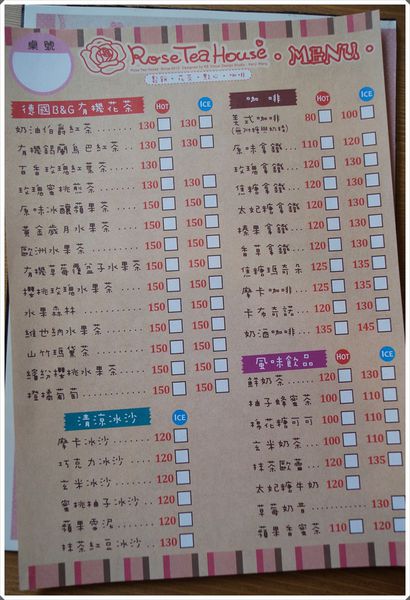 桌號
Rose Tea House
MENU
輕飲・花茶・點心・咖啡
德國B&G有機花茶 HOT ICE
奶油伯爵紅茶 130 130
有機錫蘭烏巴紅茶 130 130
古香玫瑰紅葉茶 130
玫瑰蜜桃煎茶 130 130
原味冰釀蘋果茶 150 150
黃金歲月水果茶 150 150
歐洲水果茶 150 150
有機草莓覆盆子水果茶 150 150
櫻桃玫瑰水果茶 150 150
水果森林 150 150
維也納水果茶 150 150
山竹瑪黛茶 150 150
繽紛櫻桃水果茶 150 150
擁擠葡萄 150 150
清涼冰沙 ICE
摩卡冰沙 120
巧克力冰沙 120
玄米冰沙 120
蜜桃柚子冰沙 120
蘋果雪泥 120
抹茶紅豆冰沙 130
咖啡 HOT ICE
美式咖啡 80 100
原味拿鐵 110 120
玫瑰拿鐵
焦糖拿鐵
太妃糖拿鐵
榛果拿鐵
香草拿鐵
焦糖瑪奇朵 125 135
摩卡咖啡 125 135
卡布奇諾 120
奶酒咖啡 135 145
風味飲品 HOT ICE
鮮奶茶 120 130
柚子蜂蜜茶 100
棉花糖可可 100 110
玄米奶茶 100 110
抹茶歐蕾 120 135
太妃糖牛奶 120
草莓奶昔 130
蘋果香蜜茶 110 120